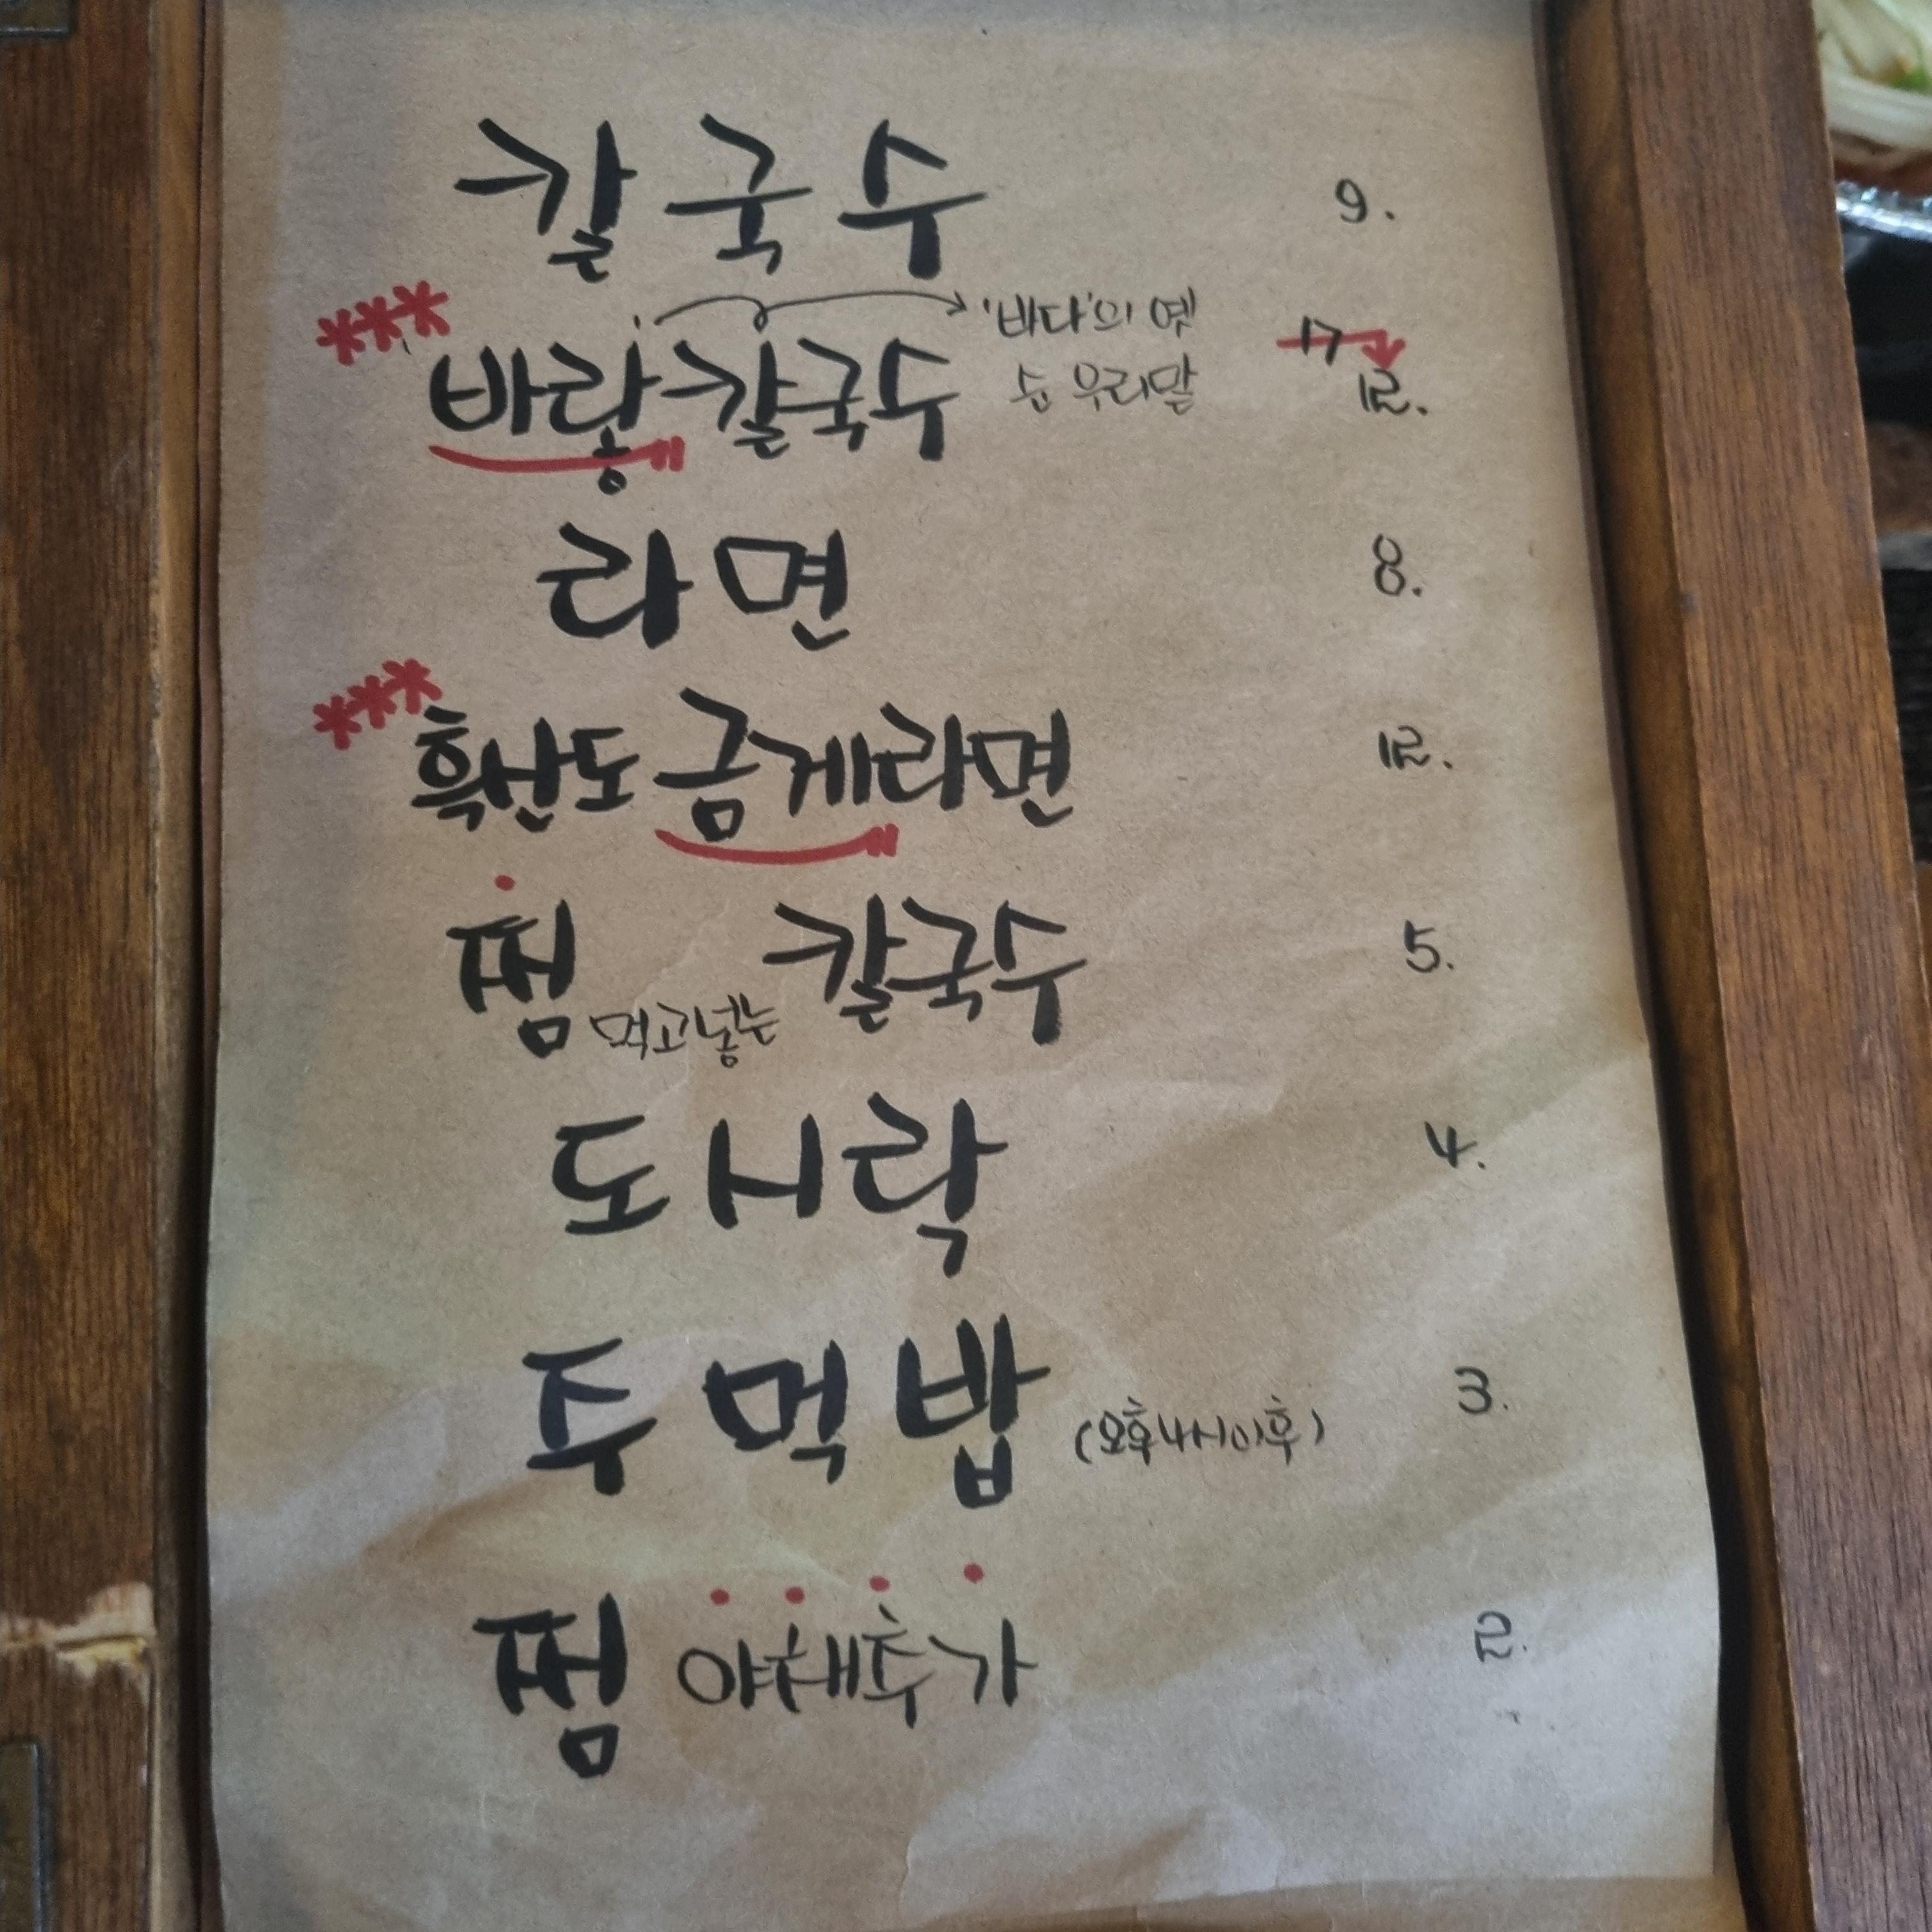 칼국수 9.
'바다'의 옛
바랗칼국수 순 우리말 17 12.
라면 8.
흑산도 금게라면 12.
펌 먹고넣는 칼국수 5.
도시락 4.
주먹밥 (오후4시이후) 3.
펌 야채추가 2.